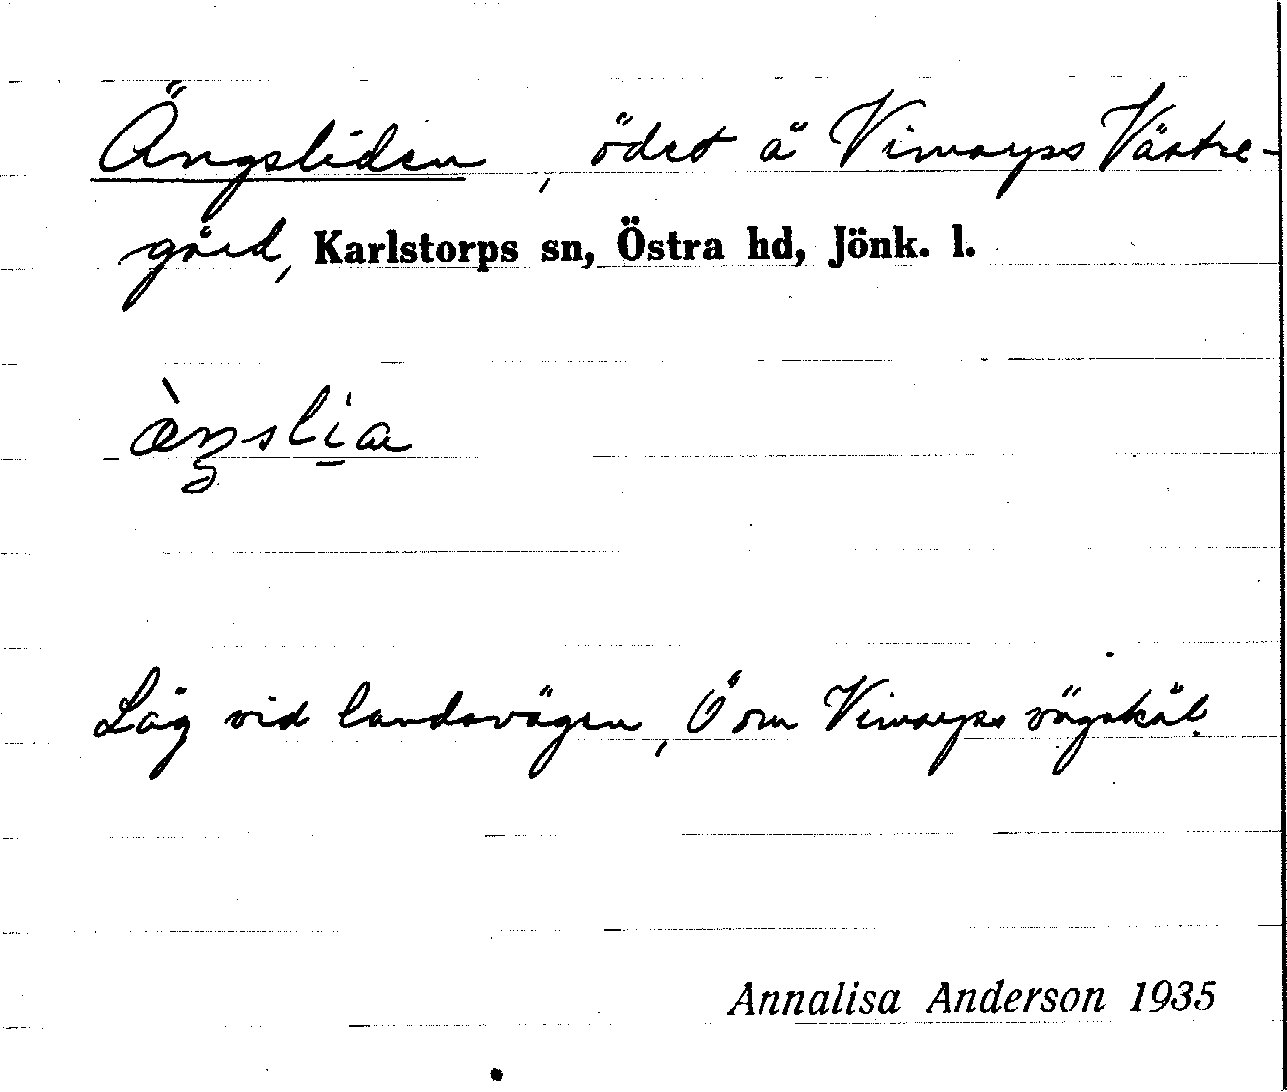 Ängsliden, ödet å Vimarps Västre-
gård, Karlstorps sn, Östra hd, Jönk. l.
æ̀ŋslia
Låg vid landsvägen, Ö om Vimarps vägskäl.
Annalisa Anderson 1935